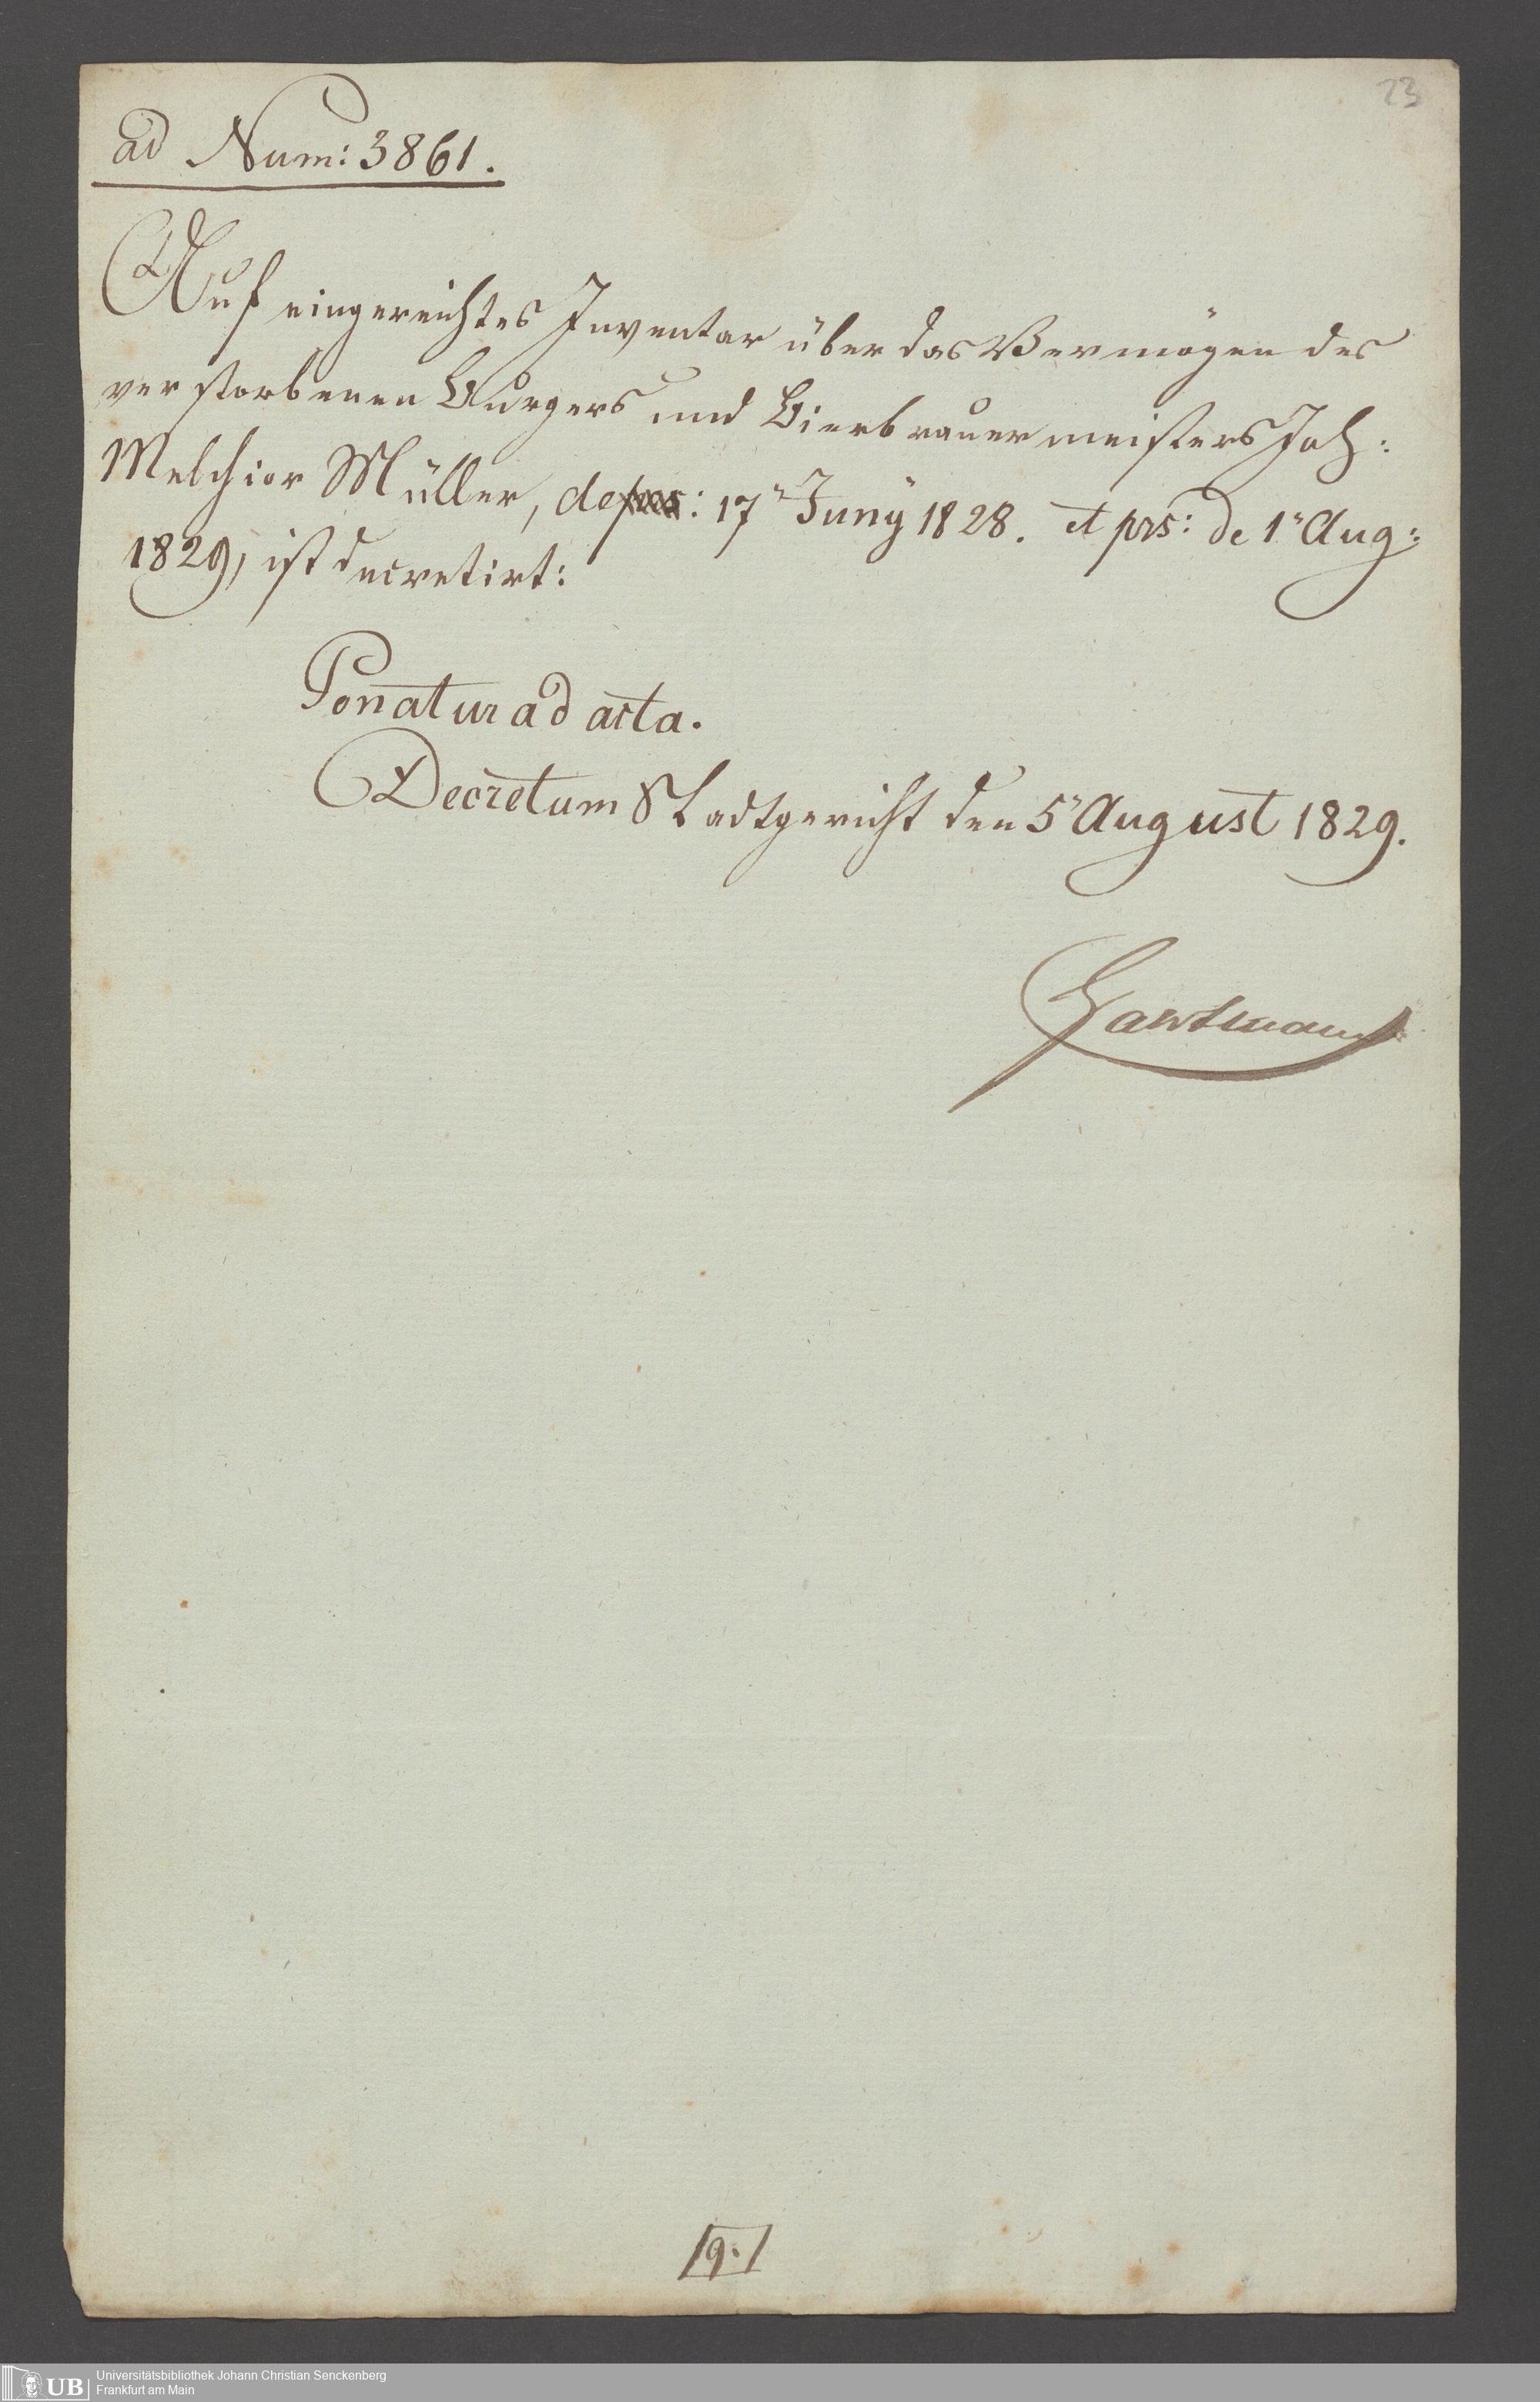 23
ad Num: 3861.
Auf eingereichtes Inventar über das Vermögen des
verstorbenen Burgers und Bierbrauermeisters Joh:
Melchior Müller, de : 17" Juny 1828. et prs: de 1" Aug:
1829, ist decretirt:
Ponatur ad acta.
Decretum Stadtgericht den 5" August 1829.
Hartmann
9.
UB
Universitätsbibliothek Johann Christian Senckenberg
Frankfurt am Main